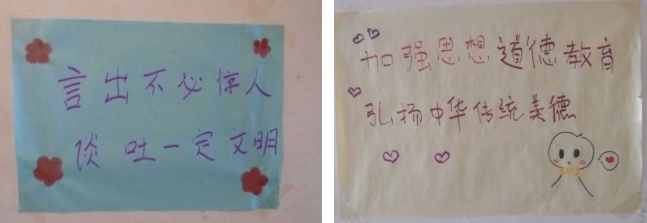 言出不必惊人
谈吐一定文明
加强思想道德教育
弘扬中华传统美德